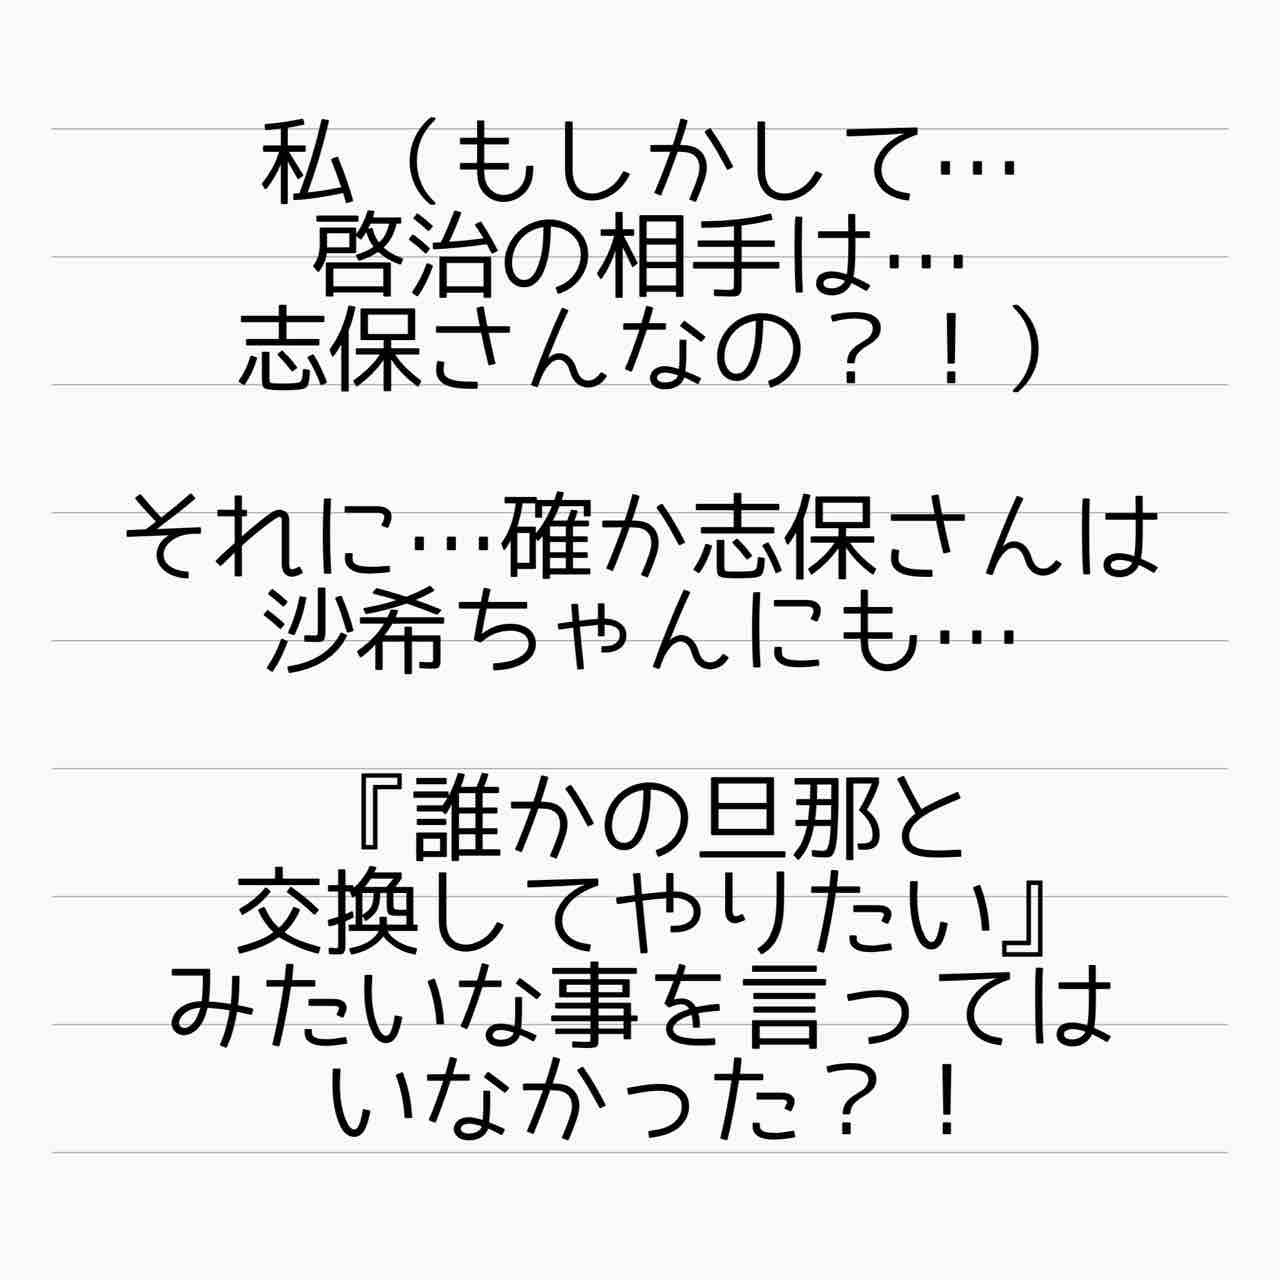 私（もしかして…
啓治の相手は…
志保さんなの？！）
それに…確か志保さんは
沙希ちゃんにも…
『誰かの旦那と
交換してやりたい』
みたいな事を言っては
いなかった？！